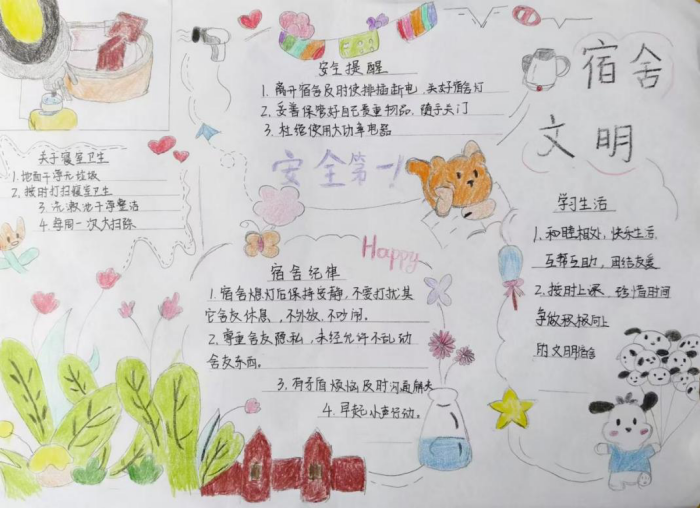 宿舍
文明
安全提醒
1. 离开宿舍及时使排插断电、关好宿舍灯
2. 妥善保管好自己贵重物品、随手关门
3. 杜绝使用大功率电器
安全第一!
关于寝室卫生
1. 地面干净无垃圾
2. 按时打扫寝室卫生
3. 洗漱池干净整洁
4. 每周一次大扫除
Happy
宿舍纪律
1. 宿舍熄灯后保持安静,不要打扰其
它舍友休息,不外放、不吵闹。
2. 尊重舍友隐私,未经允许不乱动
舍友东西。
3. 有矛盾烦恼及时沟通解决
4. 早起小声行动。
学习生活
1. 和睦相处,快乐生活
互帮互助,团结友爱
2. 按时上课、珍惜时间
争做积极向上
的文明宿舍